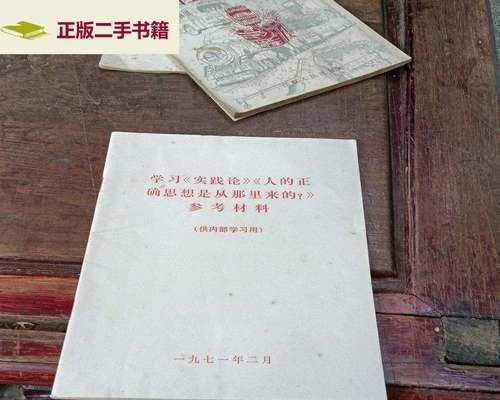 正版二手书籍
学习《实践论》《人的正
确思想是从那里来的?》
参考材料
(供内部学习用)
一九七一年二月